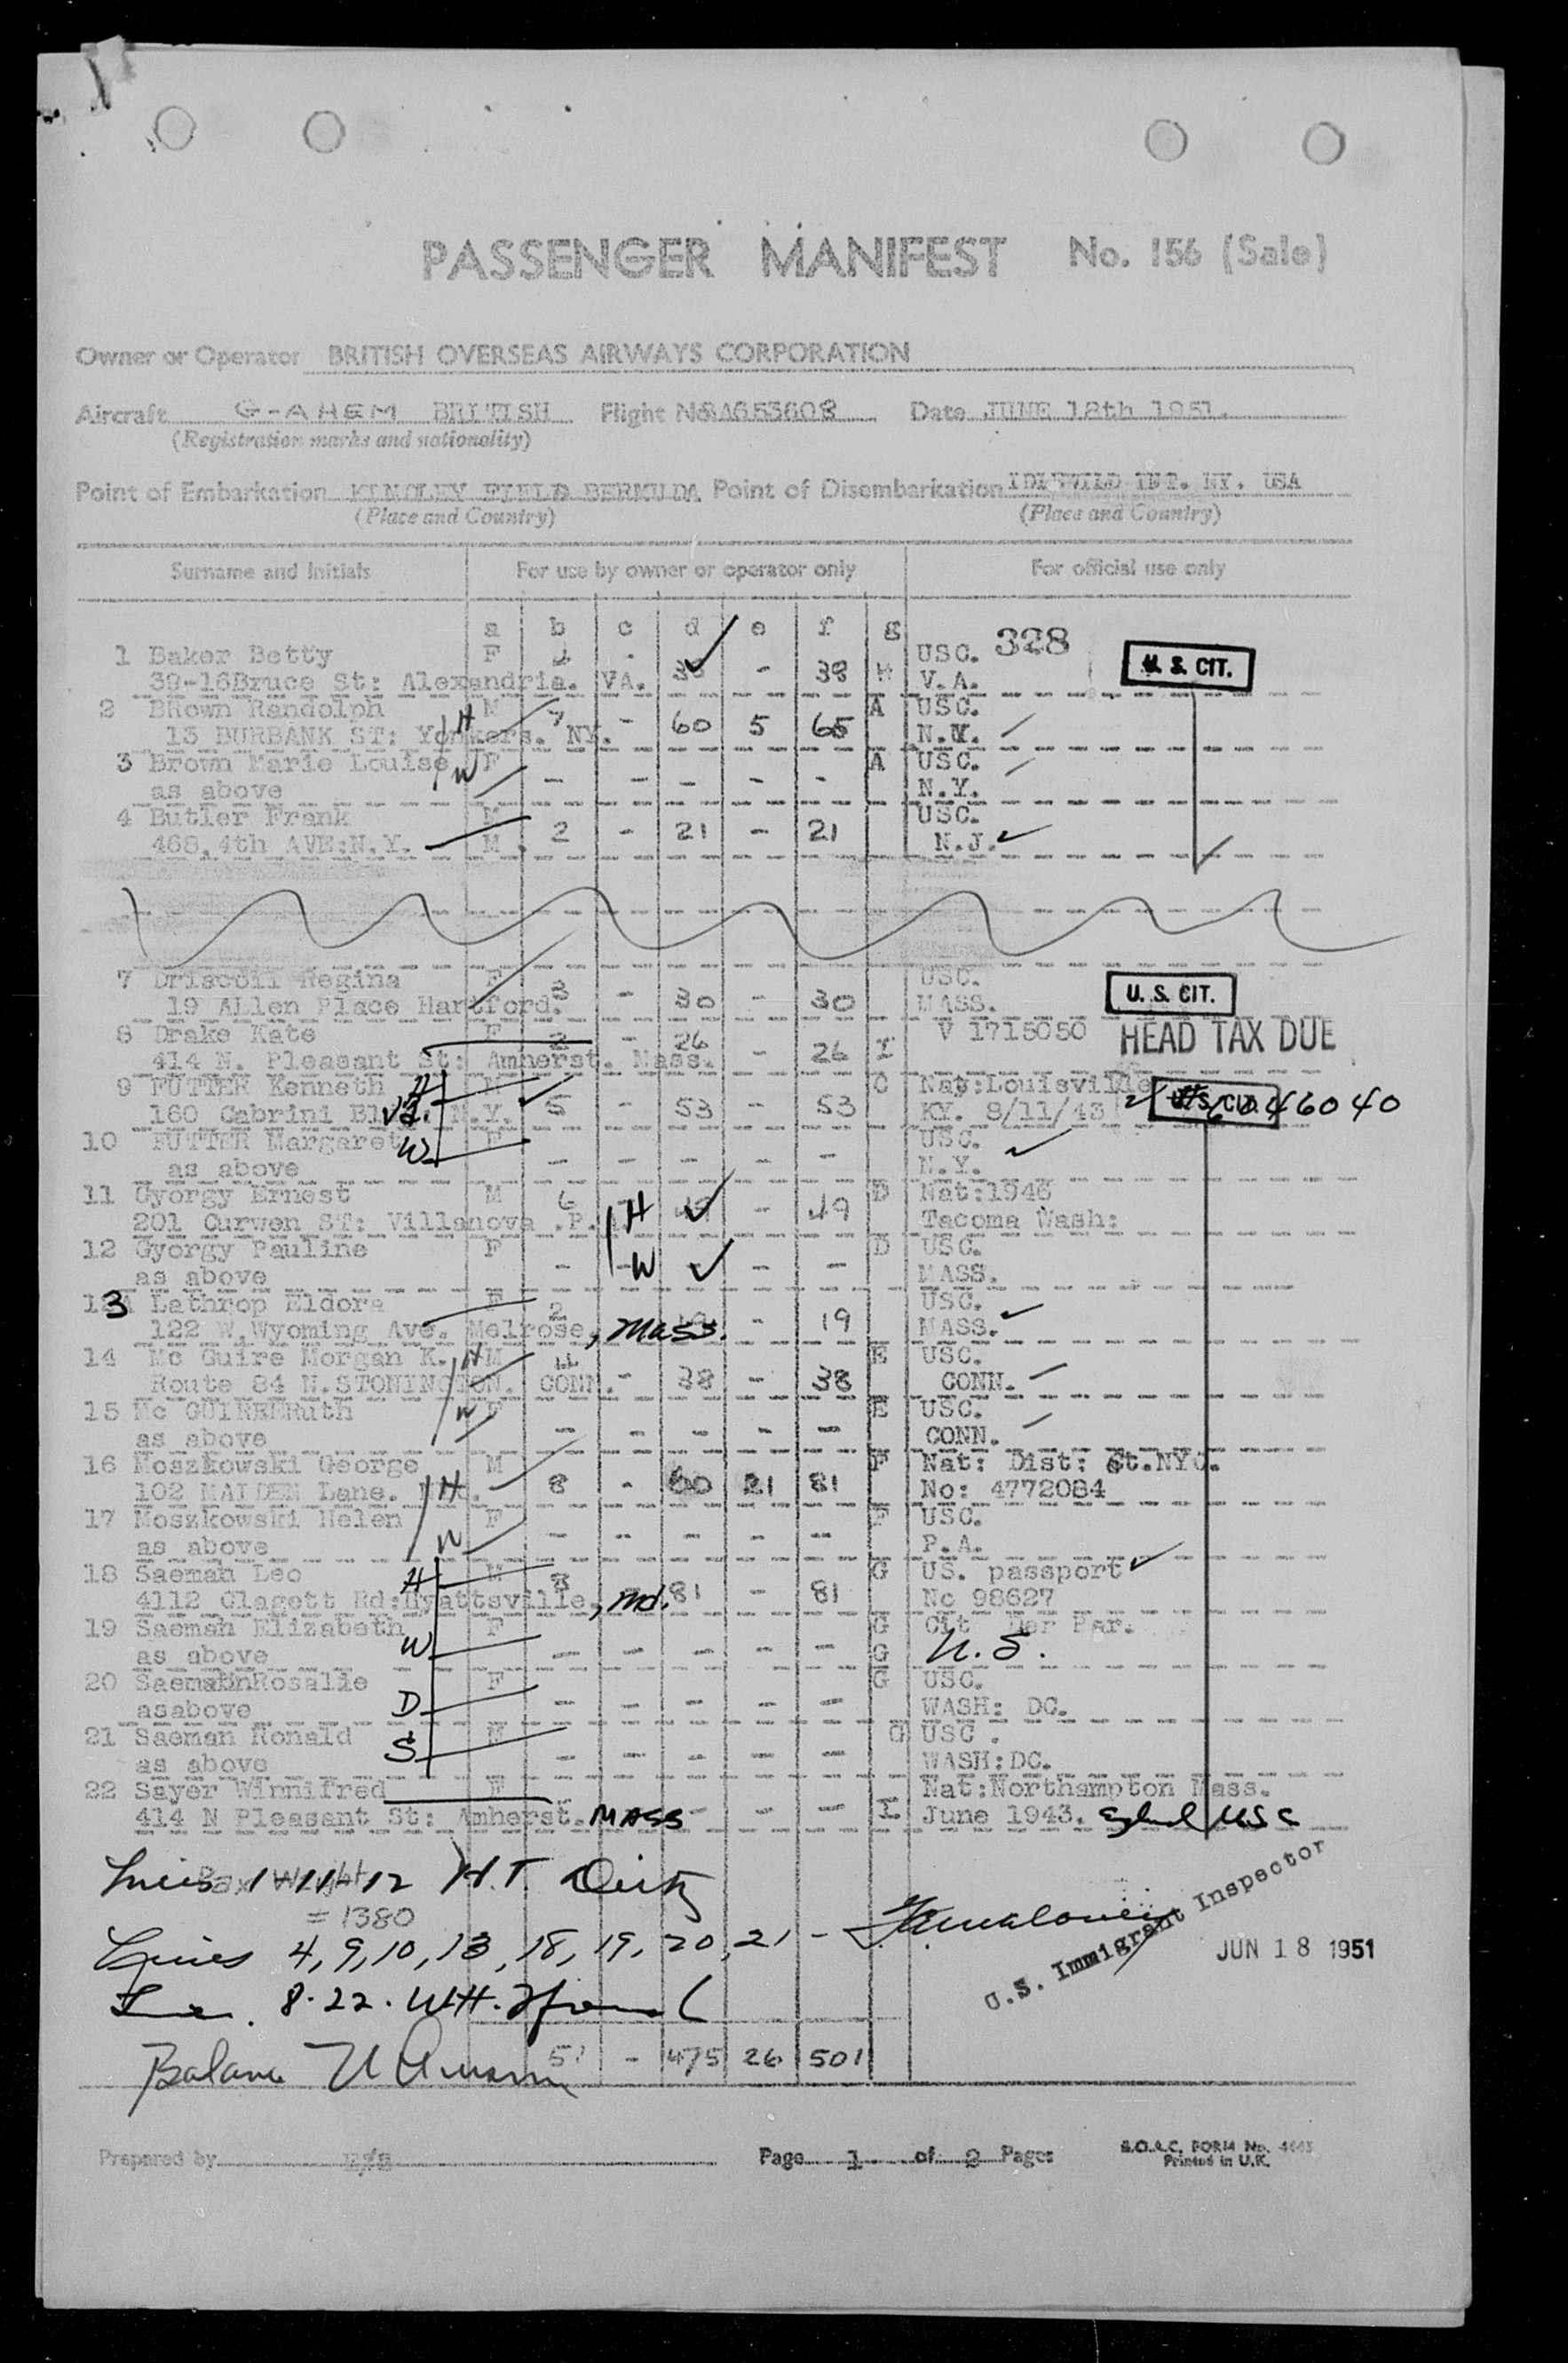 PASSENGER MANIFEST No. 156 (Sale)
Owner or Operator BRITISH OVERSEAS AIRWAYS CORPORATION
Aircraft G-AHEM BRITISH Flight Date JUNE 18th 1951.
(Registration marks and nationality)
Point of Embarkation KINDLEY FIELD BERMUDA Point of Disembarkation IDLEWILD INT. NY. USA
(Place and Country) (Place and Country)
Surname and Initials For use by owner or operator only For official use only
a b c d e f g
328
1 Baker Betty F USC. U. S. CIT.
39-16Bruce St: Alexandria. VA. 38 - 38 V.A.
2 BRown Randolph M 7 A USC.
13 BURBANK ST: Yonkers. NY. H - 60 5 65 N.Y.
3 Brown Marie Louise W F A USC.
as above - - - - - N.Y.
4 Butler Frank M USC.
468,4th AVE:N.Y. M 2 - 21 - 21 N.J.
7 Driscoll Regina F USC. U. S. CIT.
19 ALlen Place Hartford. 3 - 30 - 30 MASS.
8 Drake Kate F 2 - 26 V 1715050 HEAD TAX DUE
414 N. Pleasant St: Amherst. Mass. - 26 I
9 FUTTER Kenneth H M C Nat:Louisville
160 Cabrini Blvd. N.Y. 5 - 53 - 53 KY. 8/11/43 46040
10 FUTTER Margaret W F USC.
as above - - - - - N.Y.
11 Gyorgy Ernest M 6 D Nat:1946
201 Curwen ST: Villanova .P. H 49 - 49 Tacoma Wash:
12 Gyorgy Pauline F D USC.
as above - W - - MASS.
13 Lathrop Eldora F 2 USC.
122 W.Wyoming Ave. Melrose, Mass. 19 - 19 MASS.
14 Mc Guire Morgan K. H M E USC.
Route 84 N.STONINGTON. CONN. - 38 - 38 CONN.
15 Mc GUIREERuth W F E USC.
as above - - - - - CONN.
16 Moszkowski George M F Nat: Dist: Ct.NYC.
102 MAIDEN Lane. H 8 - 60 21 81 No: 4772084
17 Moszkowski Helen F F USC.
as above W - - - - - P.A.
18 Saeman Leo H M 8 G US. passport
4112 Clagett Rd:Hyattsville, Md. 81 - 81 No 98627
19 Saeman Elizabeth F G Cit Der Par.
as above W - - - - - G U.S.
20 Rosalie F G USC.
asabove D - - - - - WASH: DC.
21 Saeman Ronald M G USC .
as above S - - - - - WASH:DC.
22 Sayer Winnifred F Nat:Northampton Mass.
414 N Pleasant St: Amherst. MASS - - - I June 1943. USC
Lines 1-11-12 H.T.
= 1380
Lines 4,9,10,13,18,19,20,21-
U.S. Immigrant Inspector
JUN 18 1951
8-22.
51 - 475 26 501
Prepared by
Page 1 of 2 Pages
B.O.A.C. FORM No.
Printed in U.K.